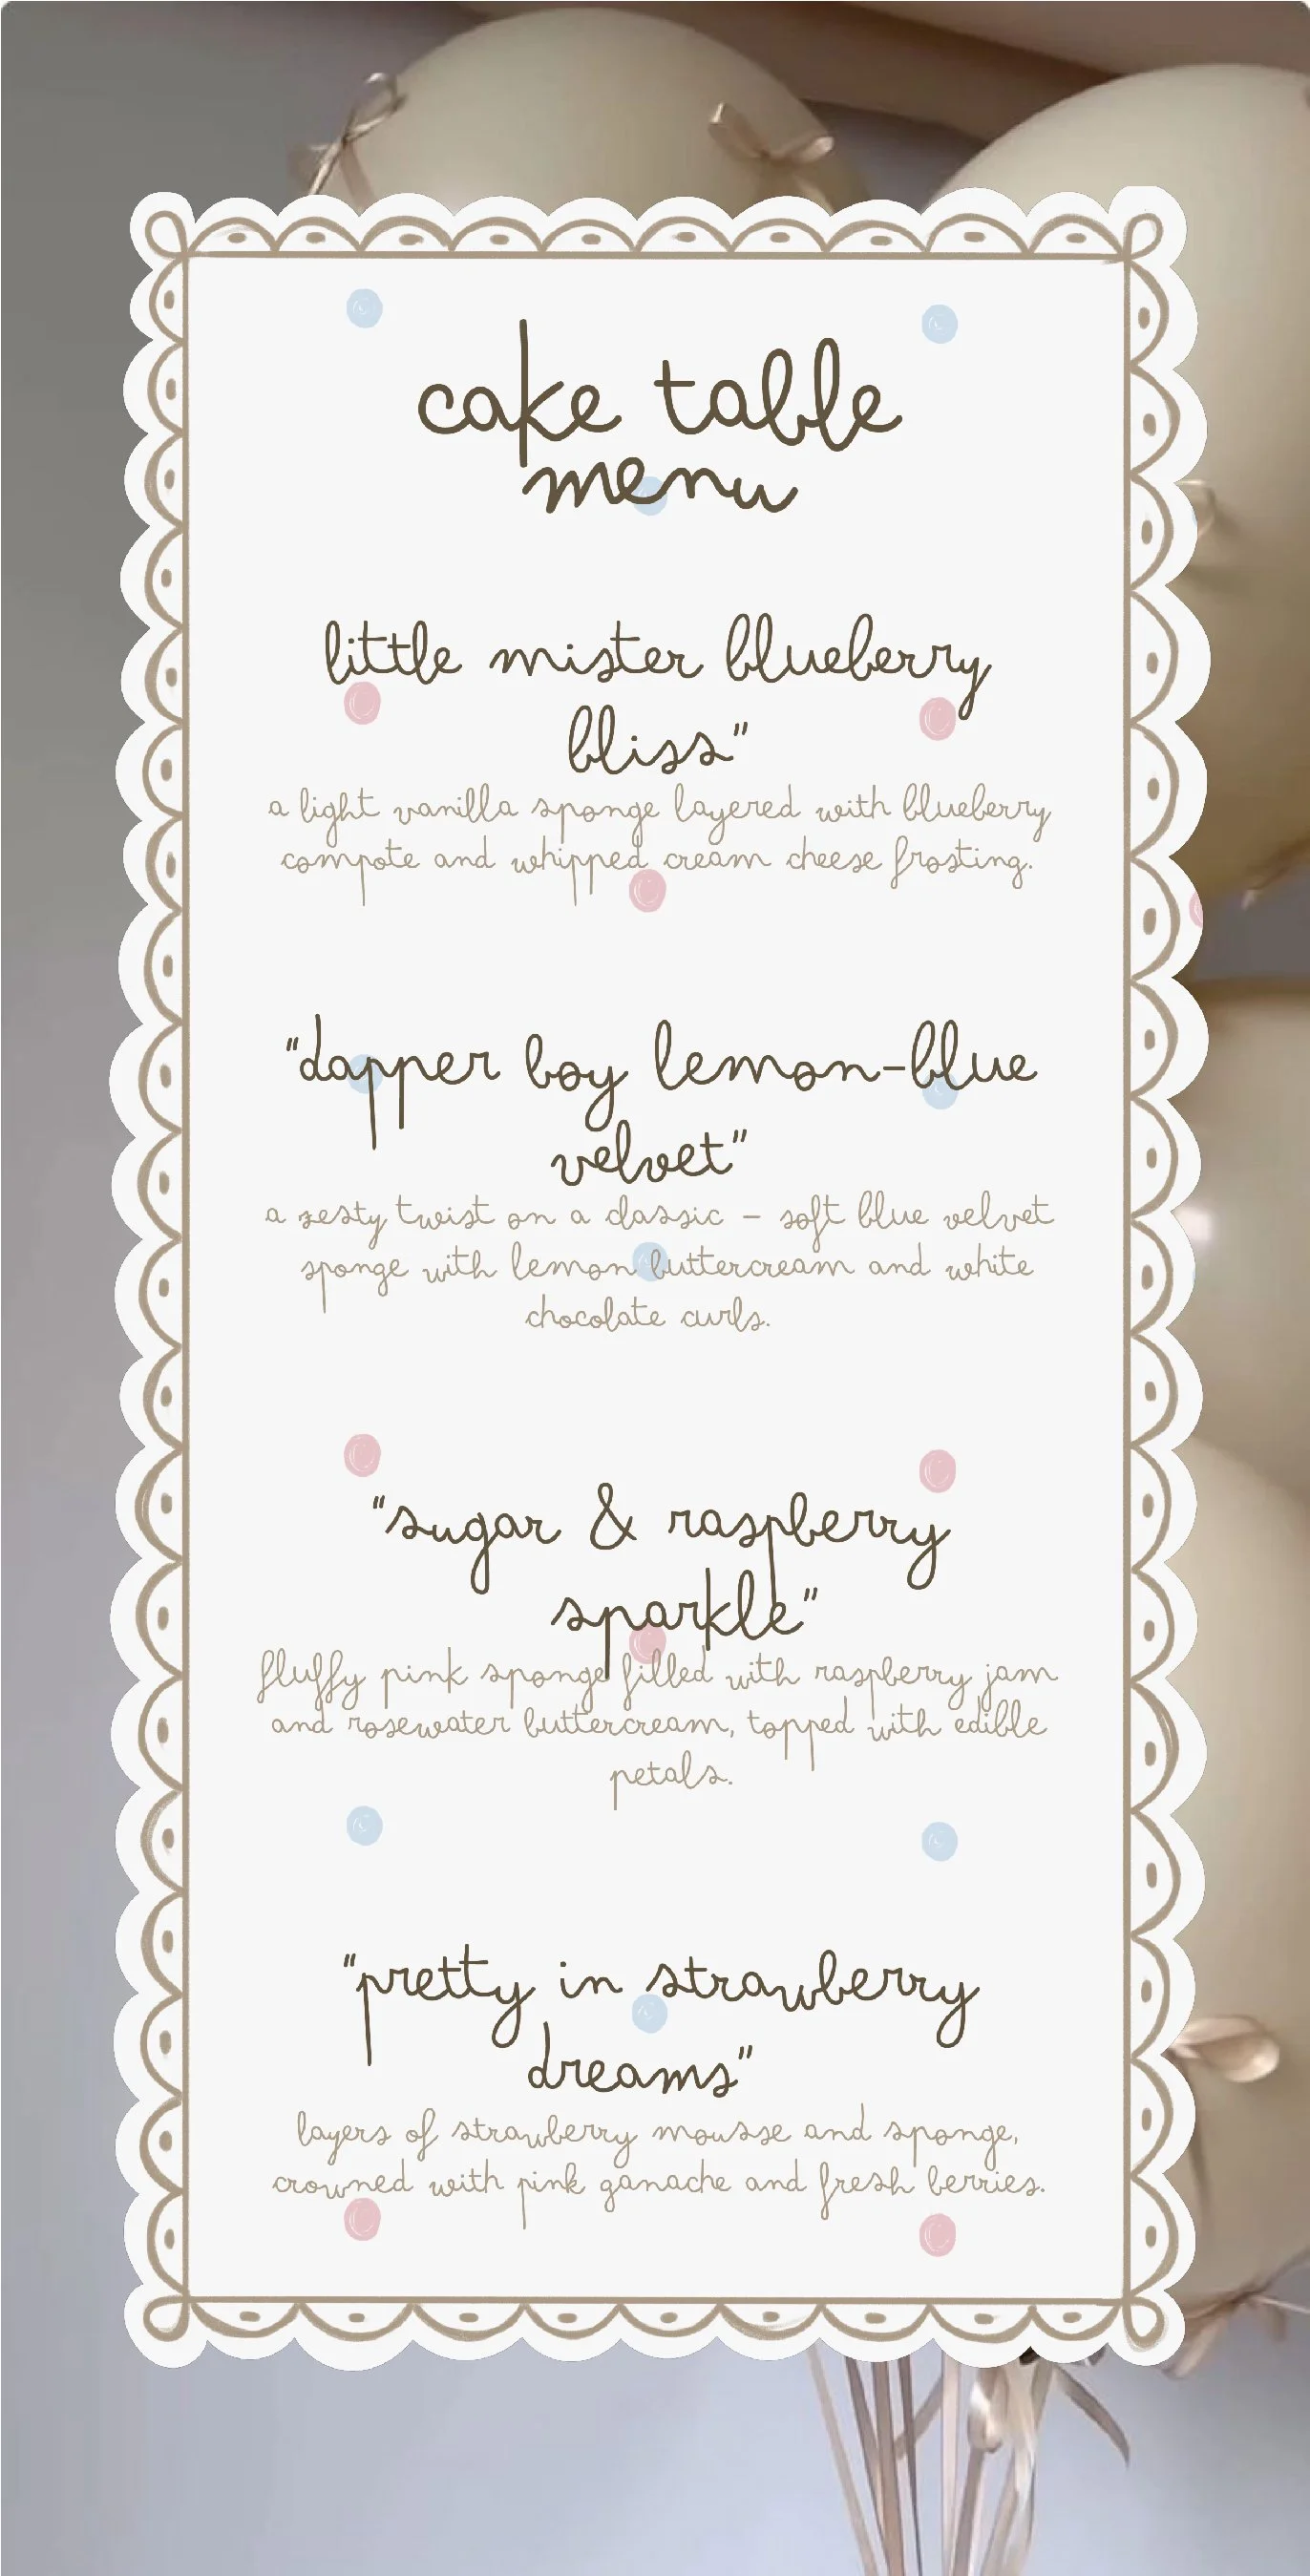 cake table
menu
little mister blueberry
bliss"
a light vanilla sponge layered with blueberry
compote and whipped cream cheese frosting.
"dapper boy lemon-blue
velvet"
a zesty twist on a classic – soft blue velvet
sponge with lemon buttercream and white
chocolate curls.
"sugar & raspberry
sparkle"
fluffy pink sponge filled with raspberry jam
and rosewater buttercream, topped with edible
petals.
"pretty in strawberry
dreams"
layers of strawberry mousse and sponge,
crowned with pink ganache and fresh berries.